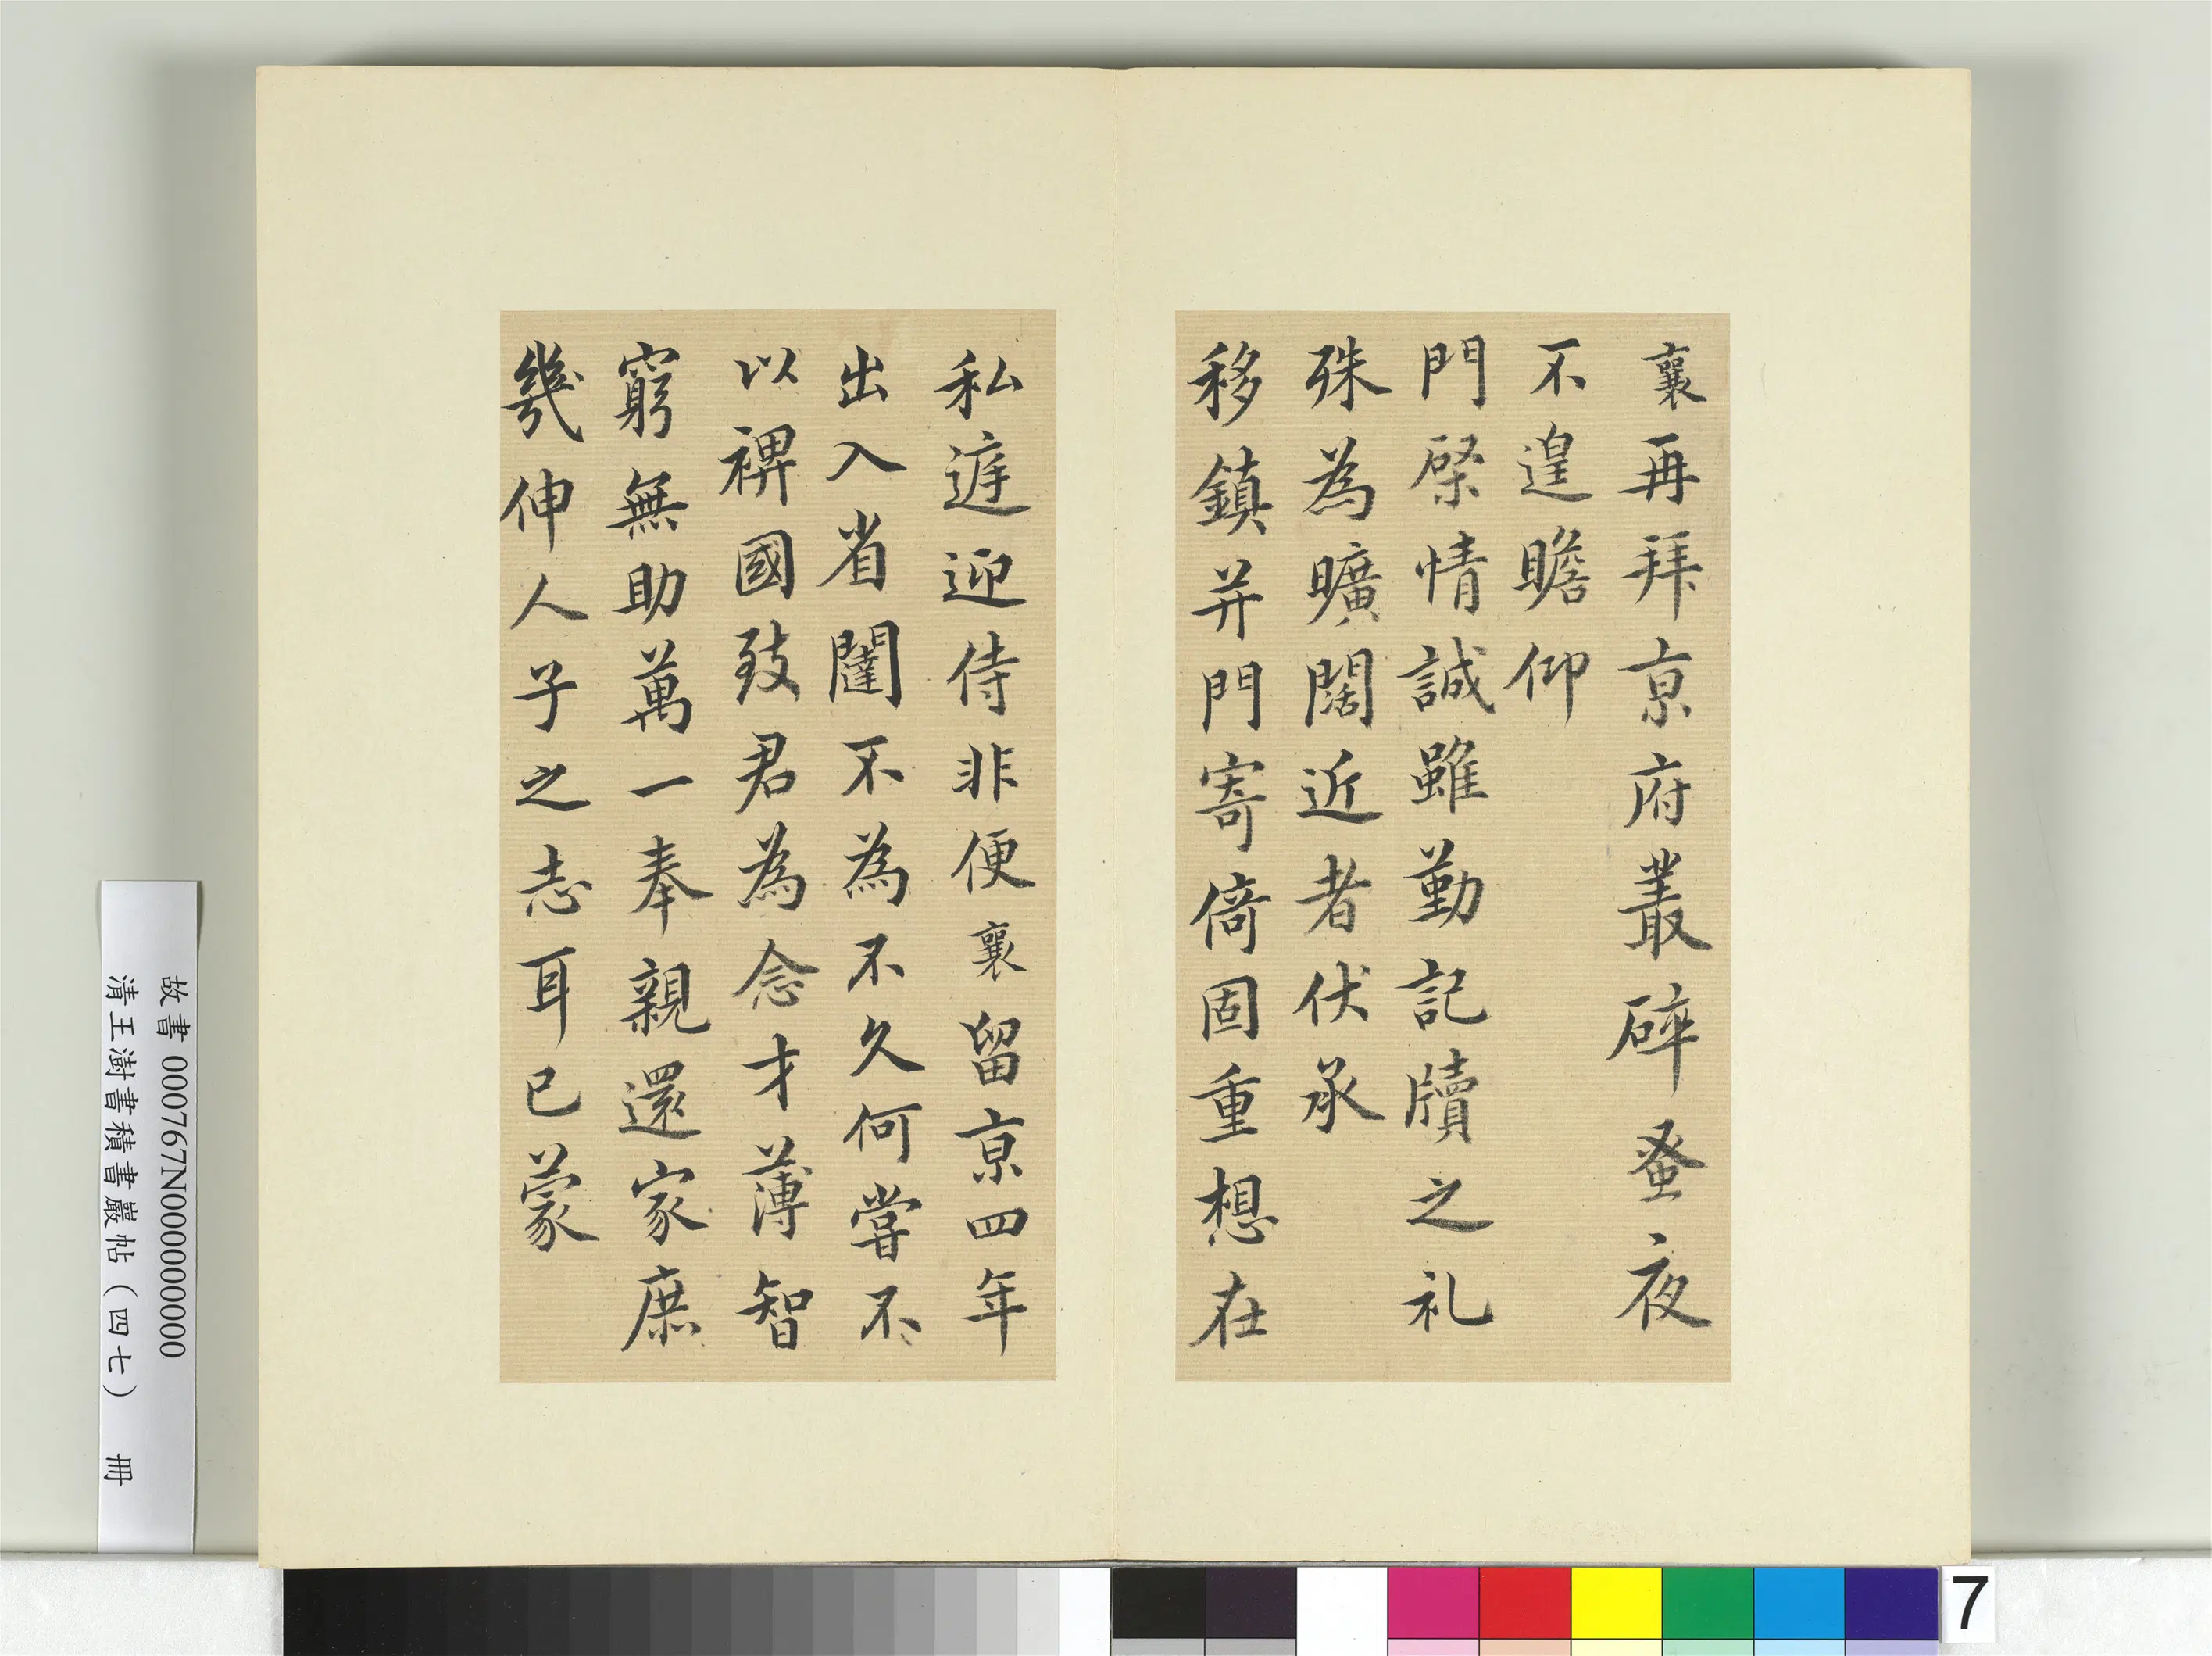 襄再拜京府叢碎蚤夜
不遑瞻仰
門棨情誠雖勤記牘之礼
殊為曠闊近者伏承
移鎮并門寄倚固重想在
私遅迎侍非便襄留京四年
出入省闥不為不久何嘗不
以裨國致君為念才薄智
窮無助萬一奉親還家庶
幾伸人子之志耳已蒙
故書 000767N000000000
清王澍書積書巖帖（四七） 冊
7